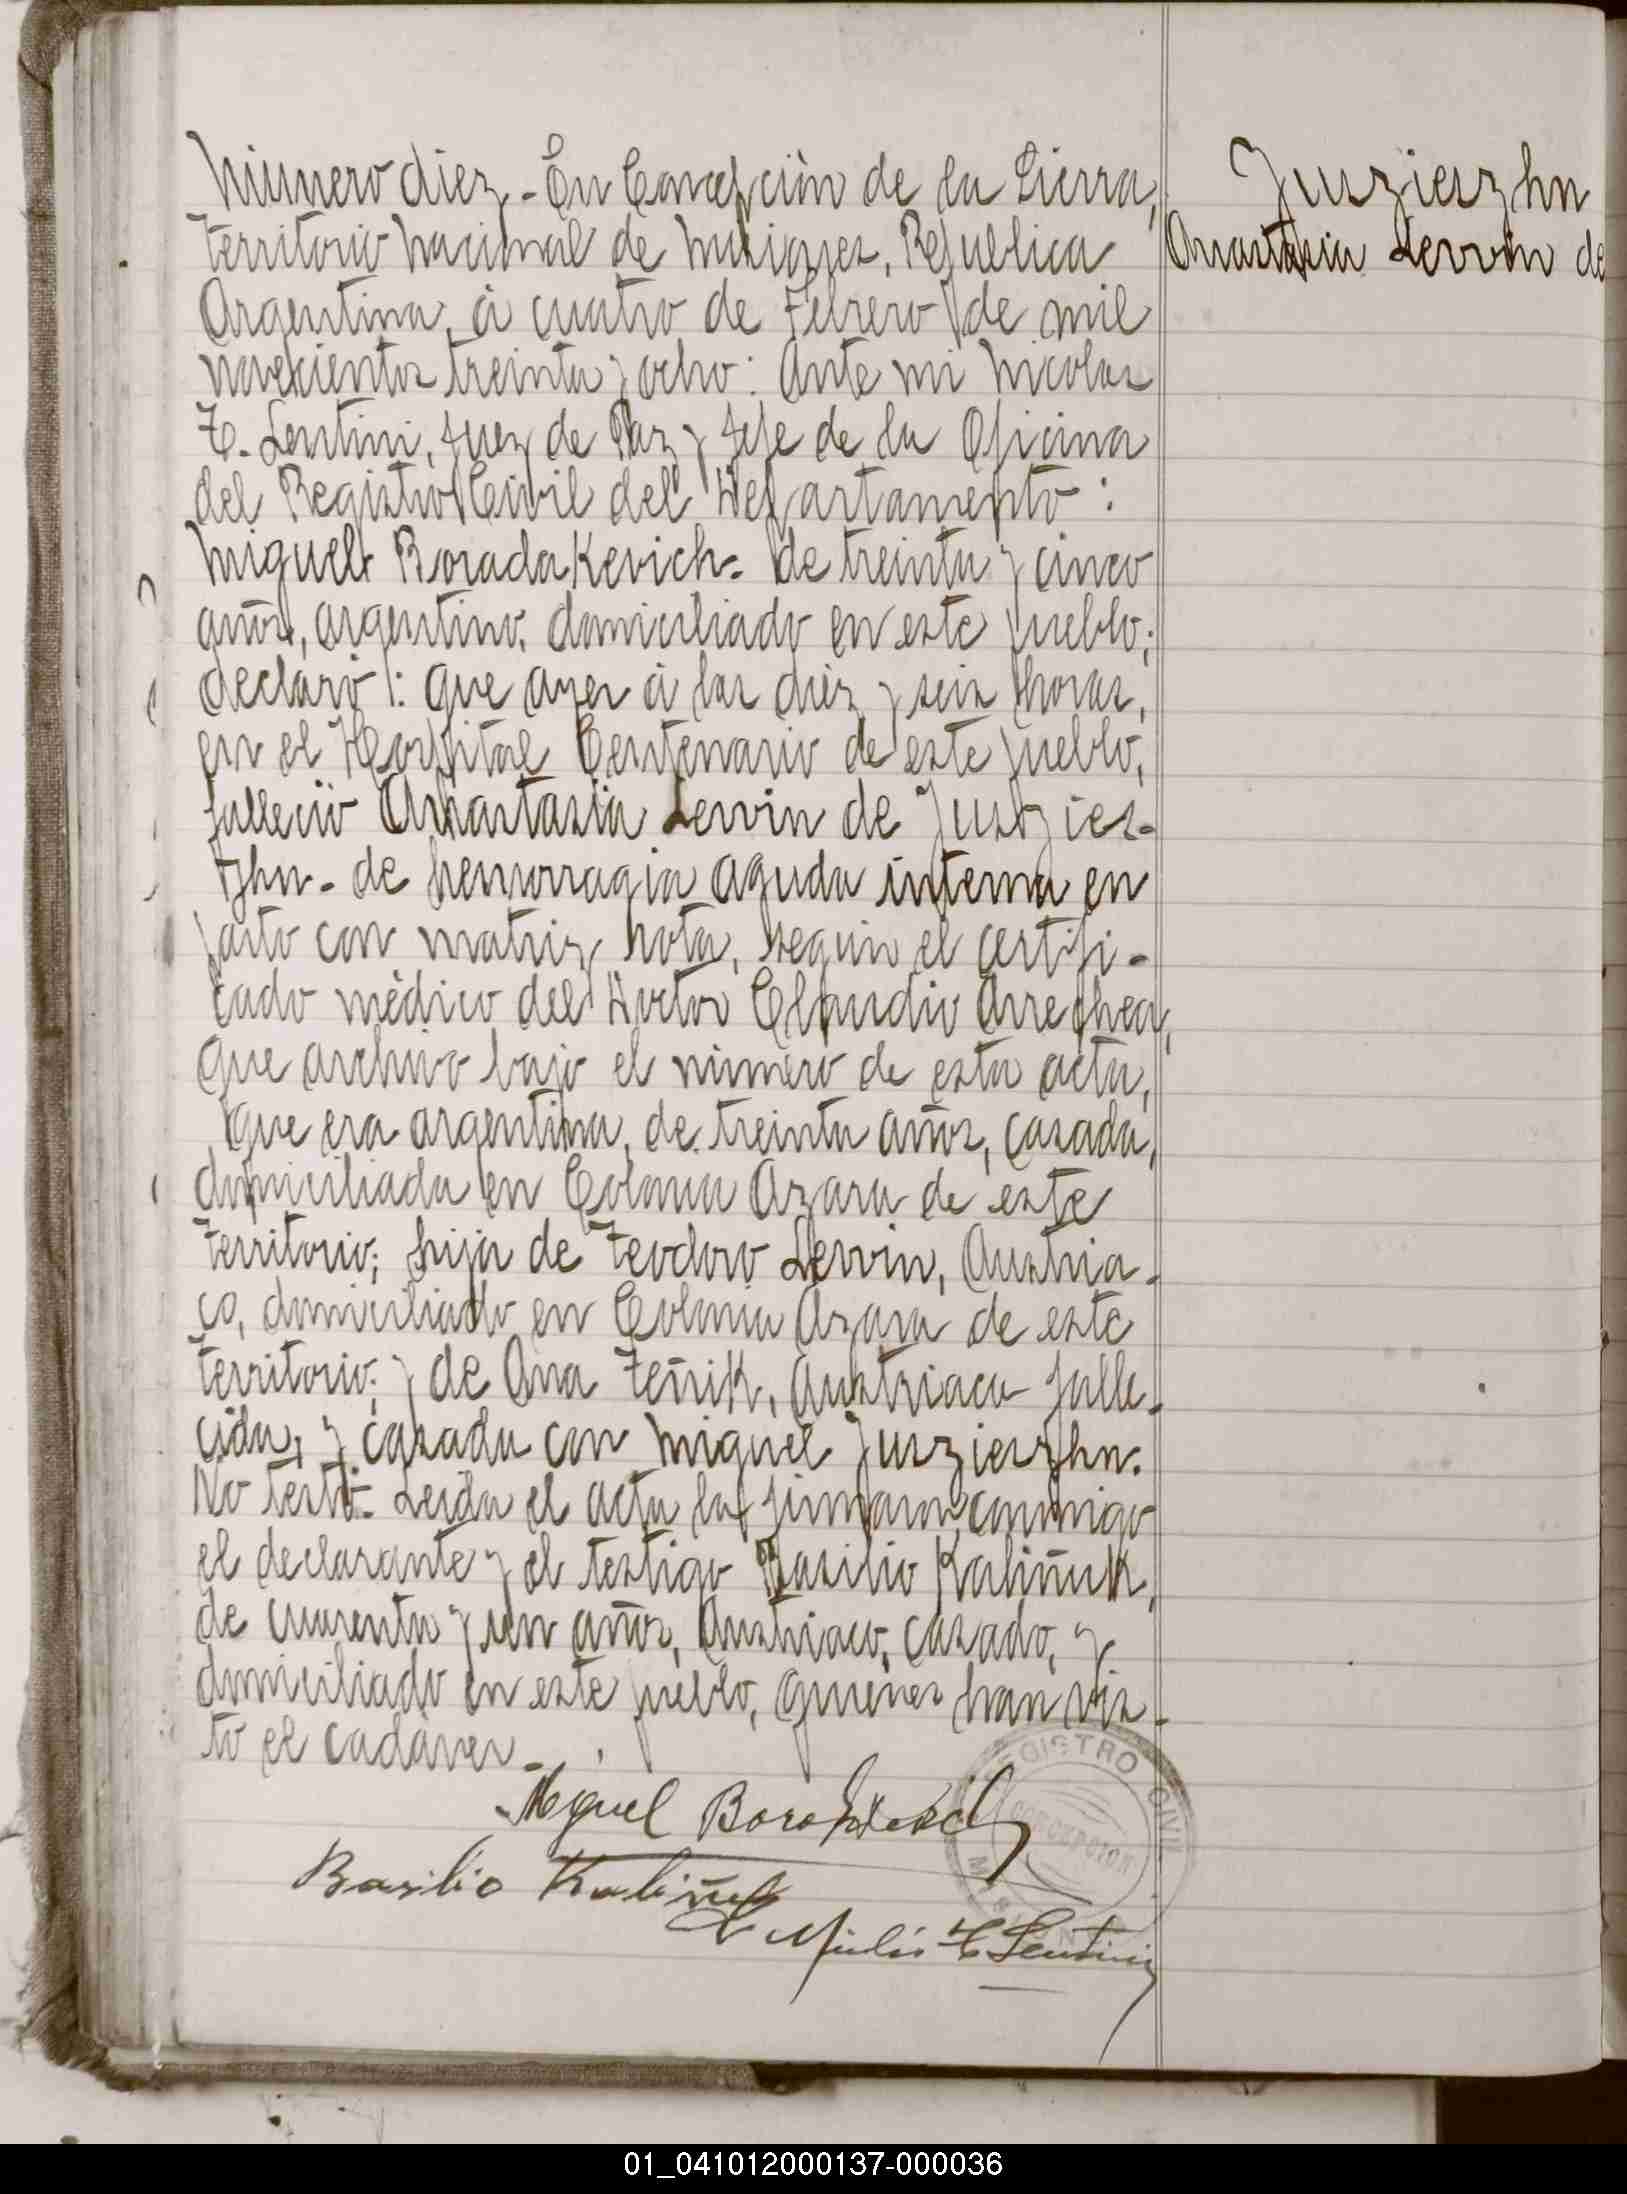 Número diez - En Concepción de la Sierra,
territorio Nacional de Misiones, República
Argentina, á cuatro de Febrero de mil
novecientos treinta y ocho: Ante mi Nicolas
T. Lentini, Juez de Paz y Jefe de la Oficina
del Registro Civil del Departamento:
Miguel Boradakevich - de treinta y cinco
años, argentino, domiciliado en este pueblo;
declaró: Que ayer á las diez y seis horas,
en el Hospital Centenario de este pueblo,
falleció Anastasia Lewin de Juszies-
zhn - de hemorragia aguda interna en
parto con matriz rota, según el certifi-
cado médico del Doctor Claudio Arrechea,
que archivo bajo el número de esta acta,
Que era argentina, de treinta años, casada,
domiciliada en Colonia Azara de este
territorio; hija de Teodoro Lewin, Austria-
co, domiciliado en Colonia Azara de este
territorio; y de Ana Zeñik, Austriaca falle-
cida, y casada con Miguel Juszieszhn.
No testó. Leida el acta la firmaron conmigo
el declarante y el testigo Basilio Kaliñuk,
de cuarenta y un años, Austriaco, casado, y
domiciliado en este pueblo, quienes han vis-
to el cadáver -
Miguel
Basilio Kaliñuk
Lentini
Juszieszhn
Anastasia Lewin de
REGISTRO CIVIL
CONCEPCION
MISIONES
01_041012000137-000036